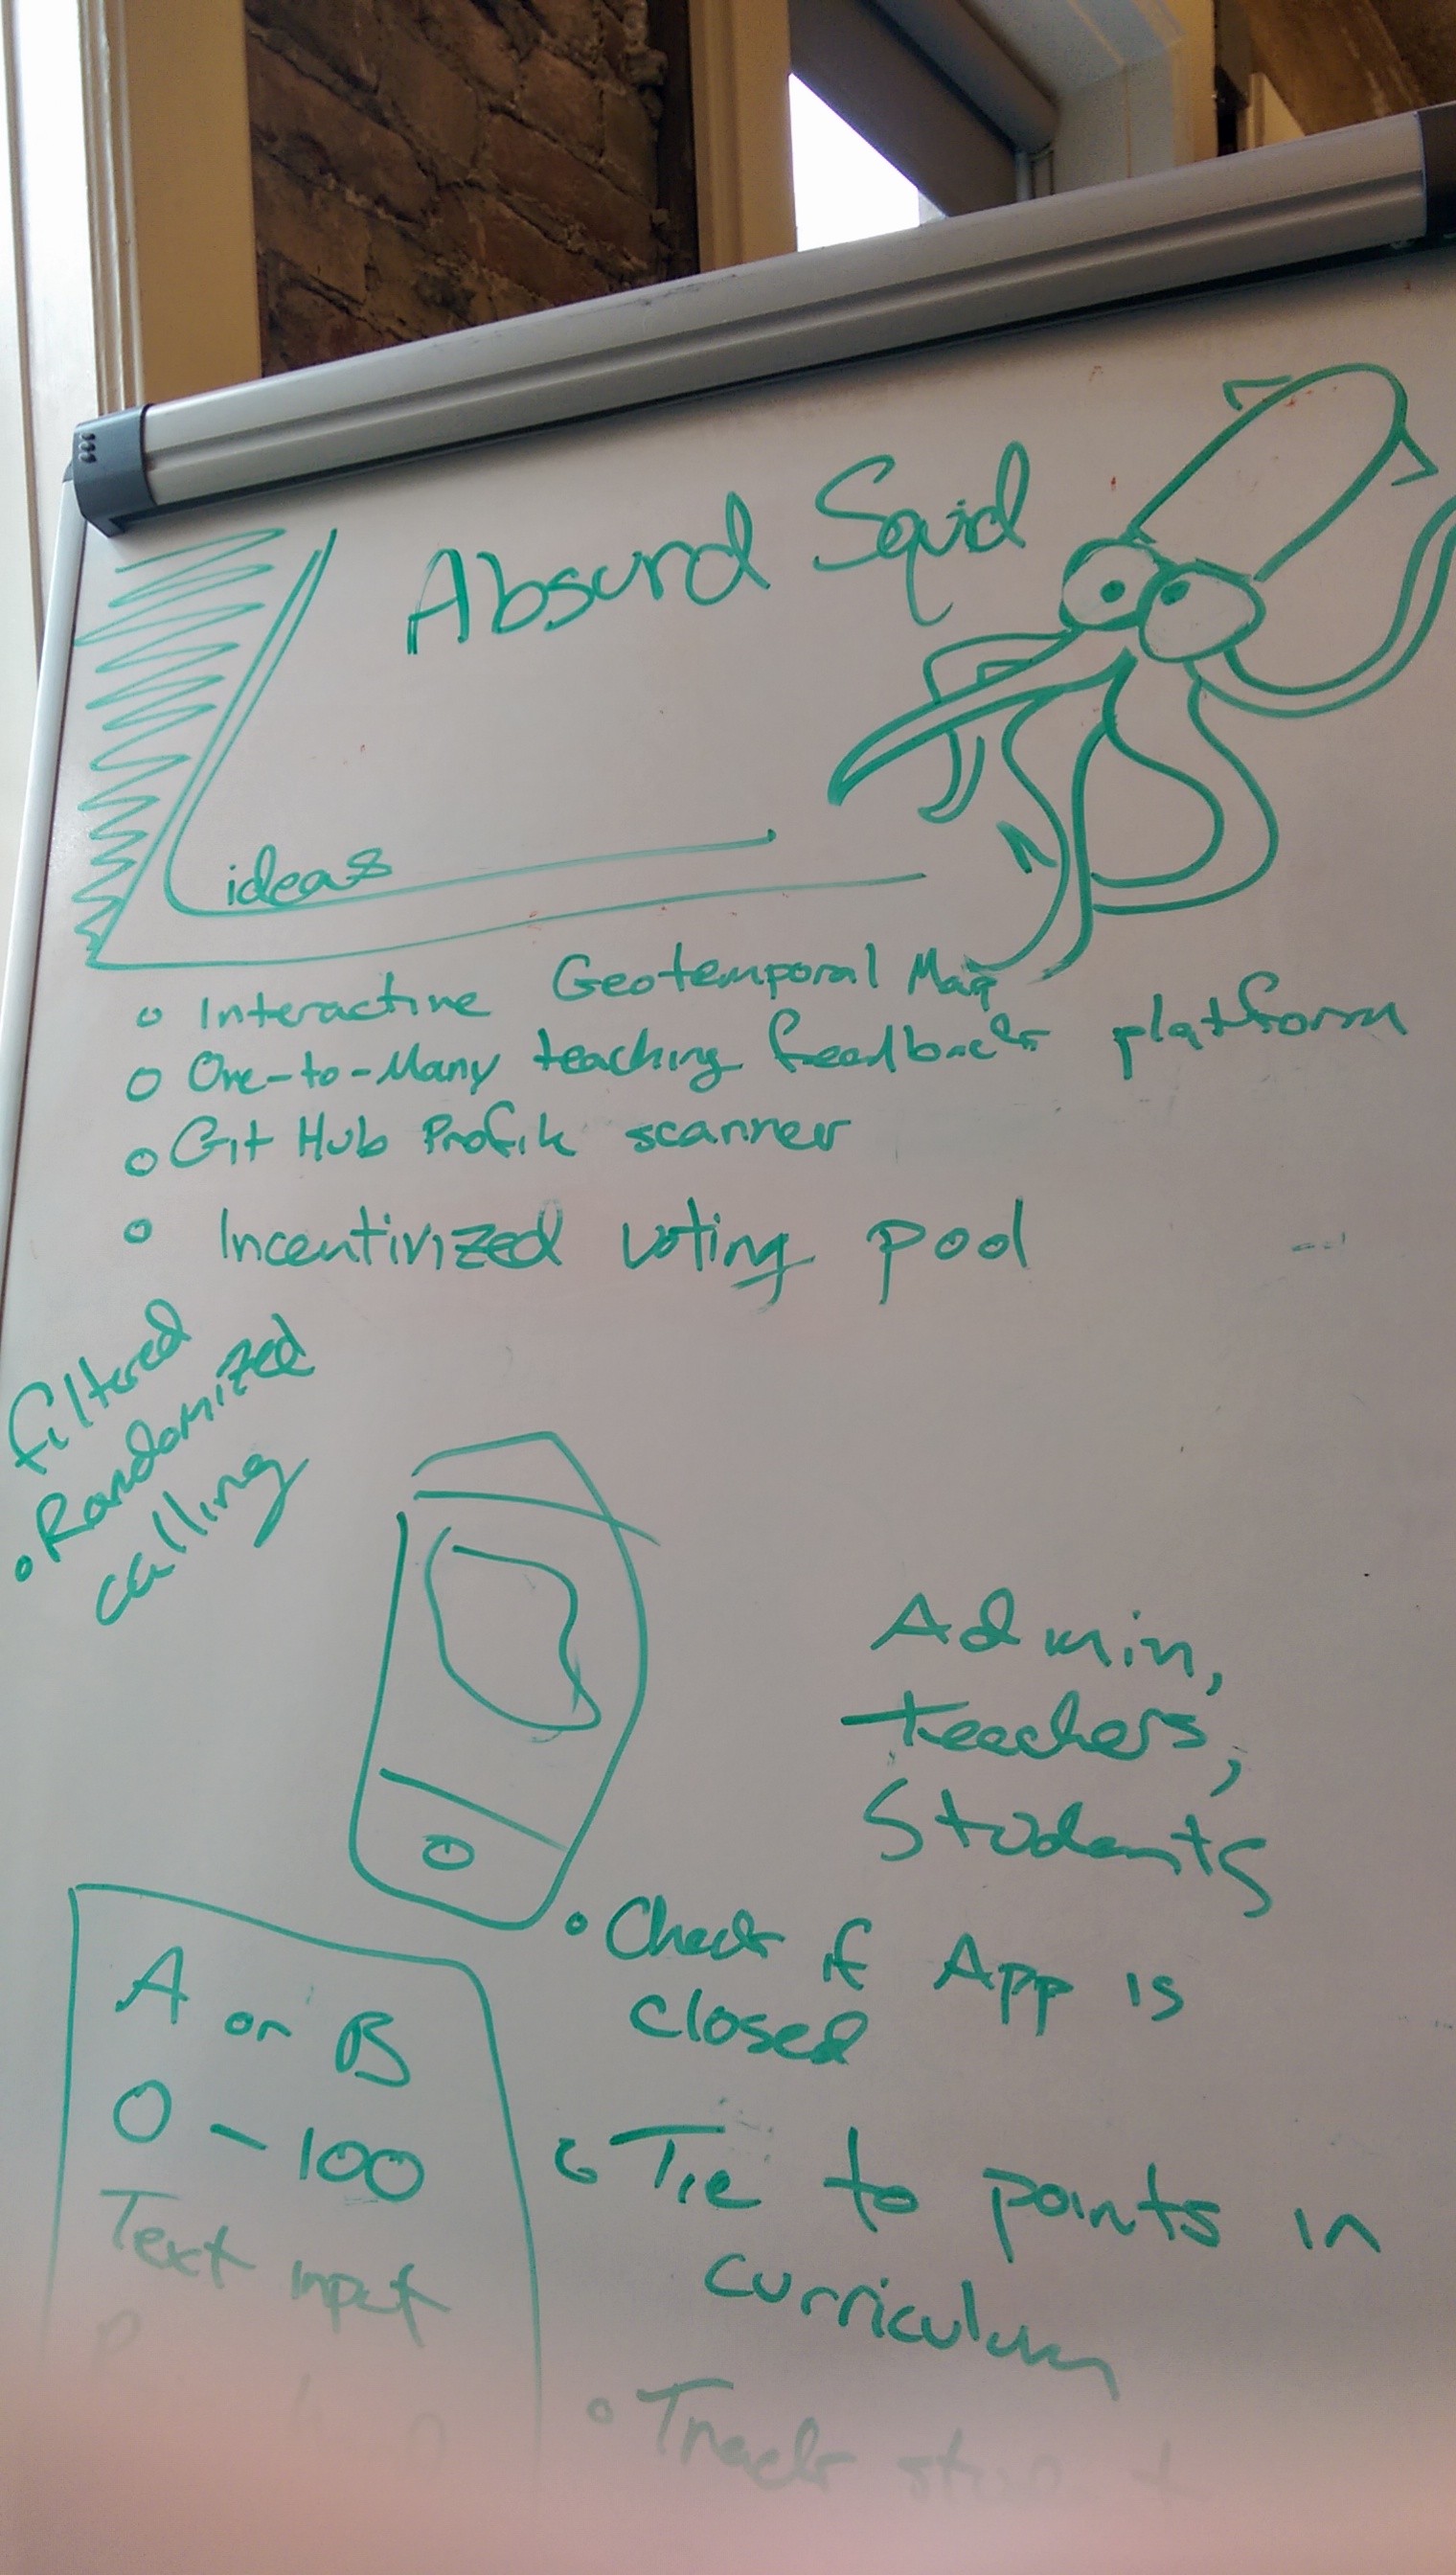 Absurd Squid
ideas
Interactive Geotemporal Map
One-to-Many teaching feedback platform
GitHub Profile scanner
Incentivized voting pool
filtered
Randomized
calling
Admin,
teachers,
Students
Check if App is
closed
A or B
0 - 100
Text input
Tie to points in
curriculum
Track student